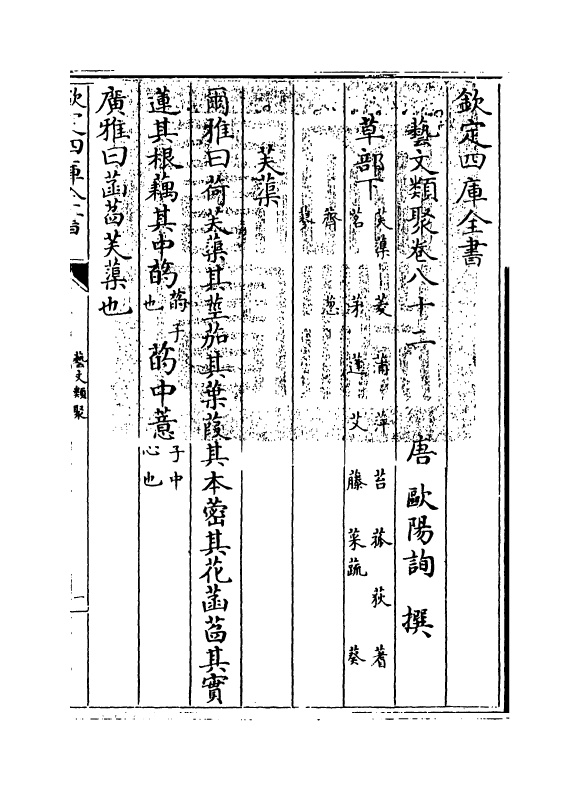 欽定四庫全書
藝文類聚卷八十二 唐 歐陽詢 撰
草部下 芙蕖 菱 蒲 萍 苔 菰 荻 蓍
茗 茅 蓬 艾 藤 菜蔬 葵
薺 葱
蓼
芙蕖
爾雅曰荷芙蕖其莖茄其葉葭其本蔤其花菡萏其實
蓮其根藕其中的 子也 的中薏 子中心也
廣雅曰菡萏芙蕖也
欽定四庫全書
藝文類聚